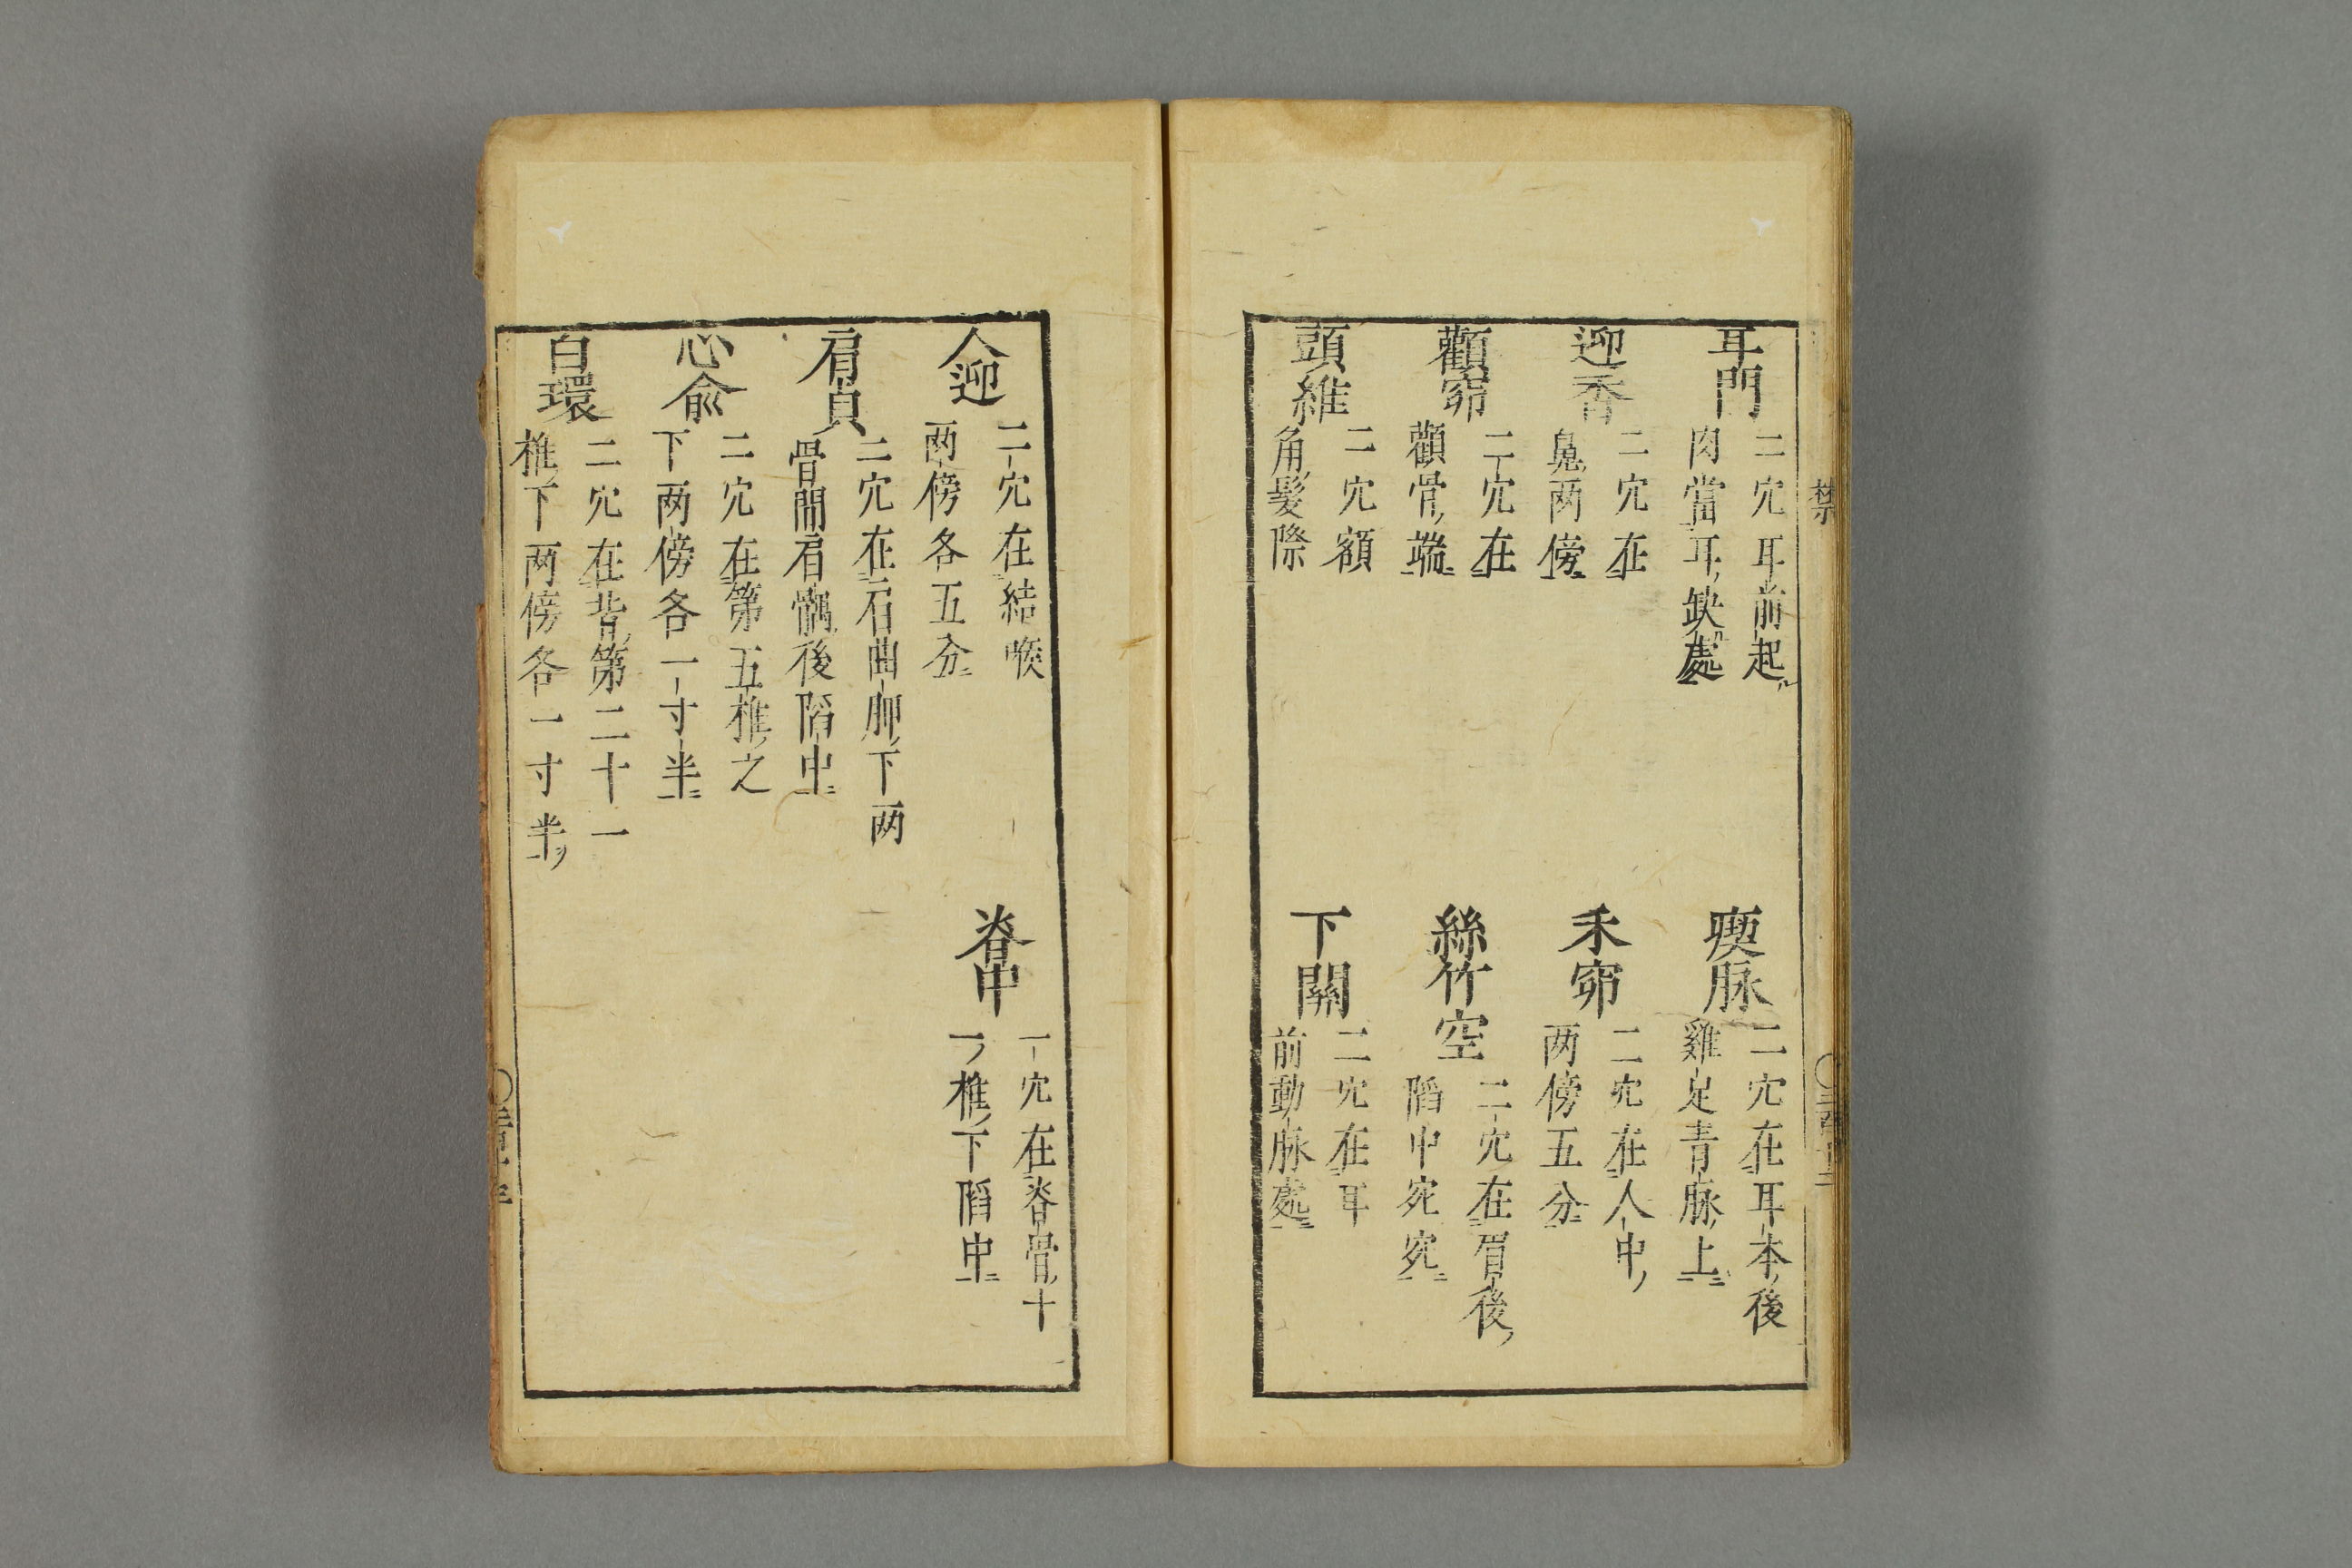 禁
耳門
二穴耳前起
肉當耳缺處
瘈脉
二穴在耳本後
雞足青脉上
迎香
二穴在
鼻两傍
禾窌
二穴在人中
两傍五分
顴窌
二穴在
顴骨端
絲竹空
二穴在眉後
陷中宛宛
頭維
二穴額
角髮際
下關
二穴在耳
前動脉處
人迎
二穴在結喉
两傍各五分
脊中
一穴在脊骨十
一椎下陷中
肩貞
二穴在曲胛下两
骨間肩髃後陷中
心俞
二穴在第五椎之
下两傍各一寸半
白環
二穴在背第二十一
椎下两傍各一寸半